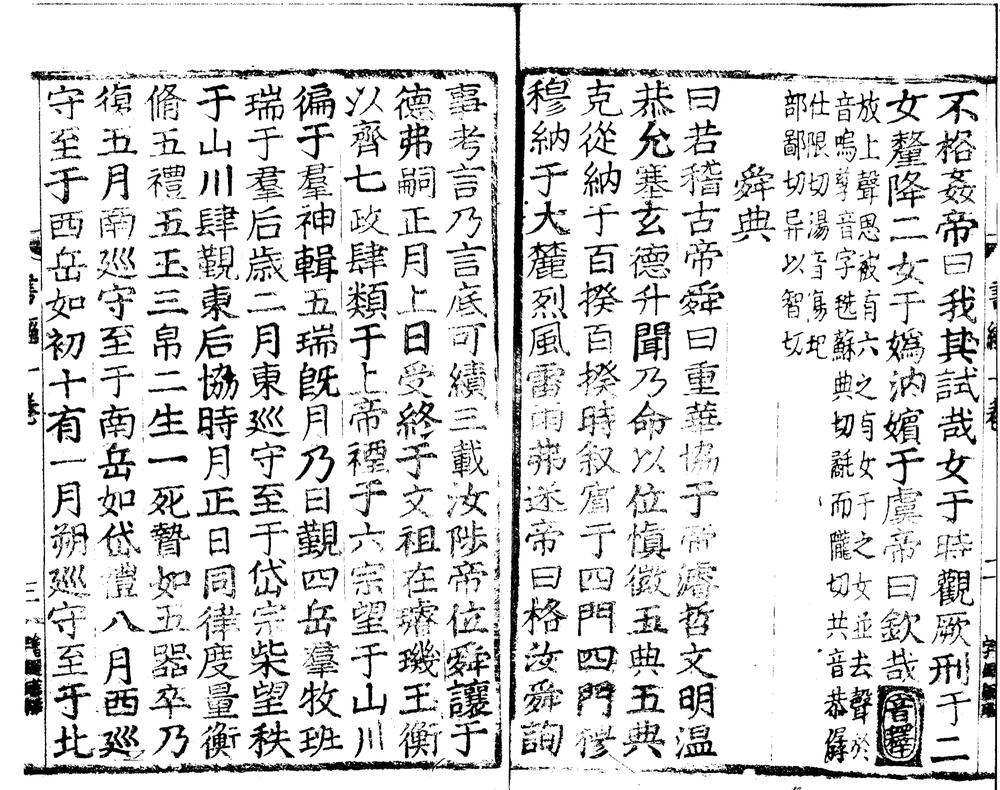 不格姦帝曰我其試哉女于時觀厥刑于二
女釐降二女于嬀汭嬪于虞帝曰欽哉音釋
放上聲思被有六之貞女于之女並去聲於
音嗚孳音字毨蘇典切氄而隴切共音恭僝
仕限切湯音傷圯
部鄙切异以智切
舜典
曰若稽古帝舜曰重華協于帝濬哲文明温
恭允塞玄德升聞乃命以位慎徽五典五典
克從納于百揆百揆時敘賓于四門四門穆
穆納于大麓烈風雷雨弗迷帝曰格汝舜詢
事考言乃言底可績三載汝陟帝位舜讓于
德弗嗣正月上日受終于文祖在璿璣玉衡
以齊七政肆類于上帝禋于六宗望于山川
徧于羣神輯五瑞旣月乃日覲四岳羣牧班
瑞于羣后歲二月東廵守至于岱宗柴望秩
于山川肆覲東后協時月正日同律度量衡
脩五禮五玉三帛二生一死贄如五器卒乃
復五月南廵守至于南岳如岱禮八月西廵
守至于西岳如初十有一月朔廵守至于北
書經一卷
三